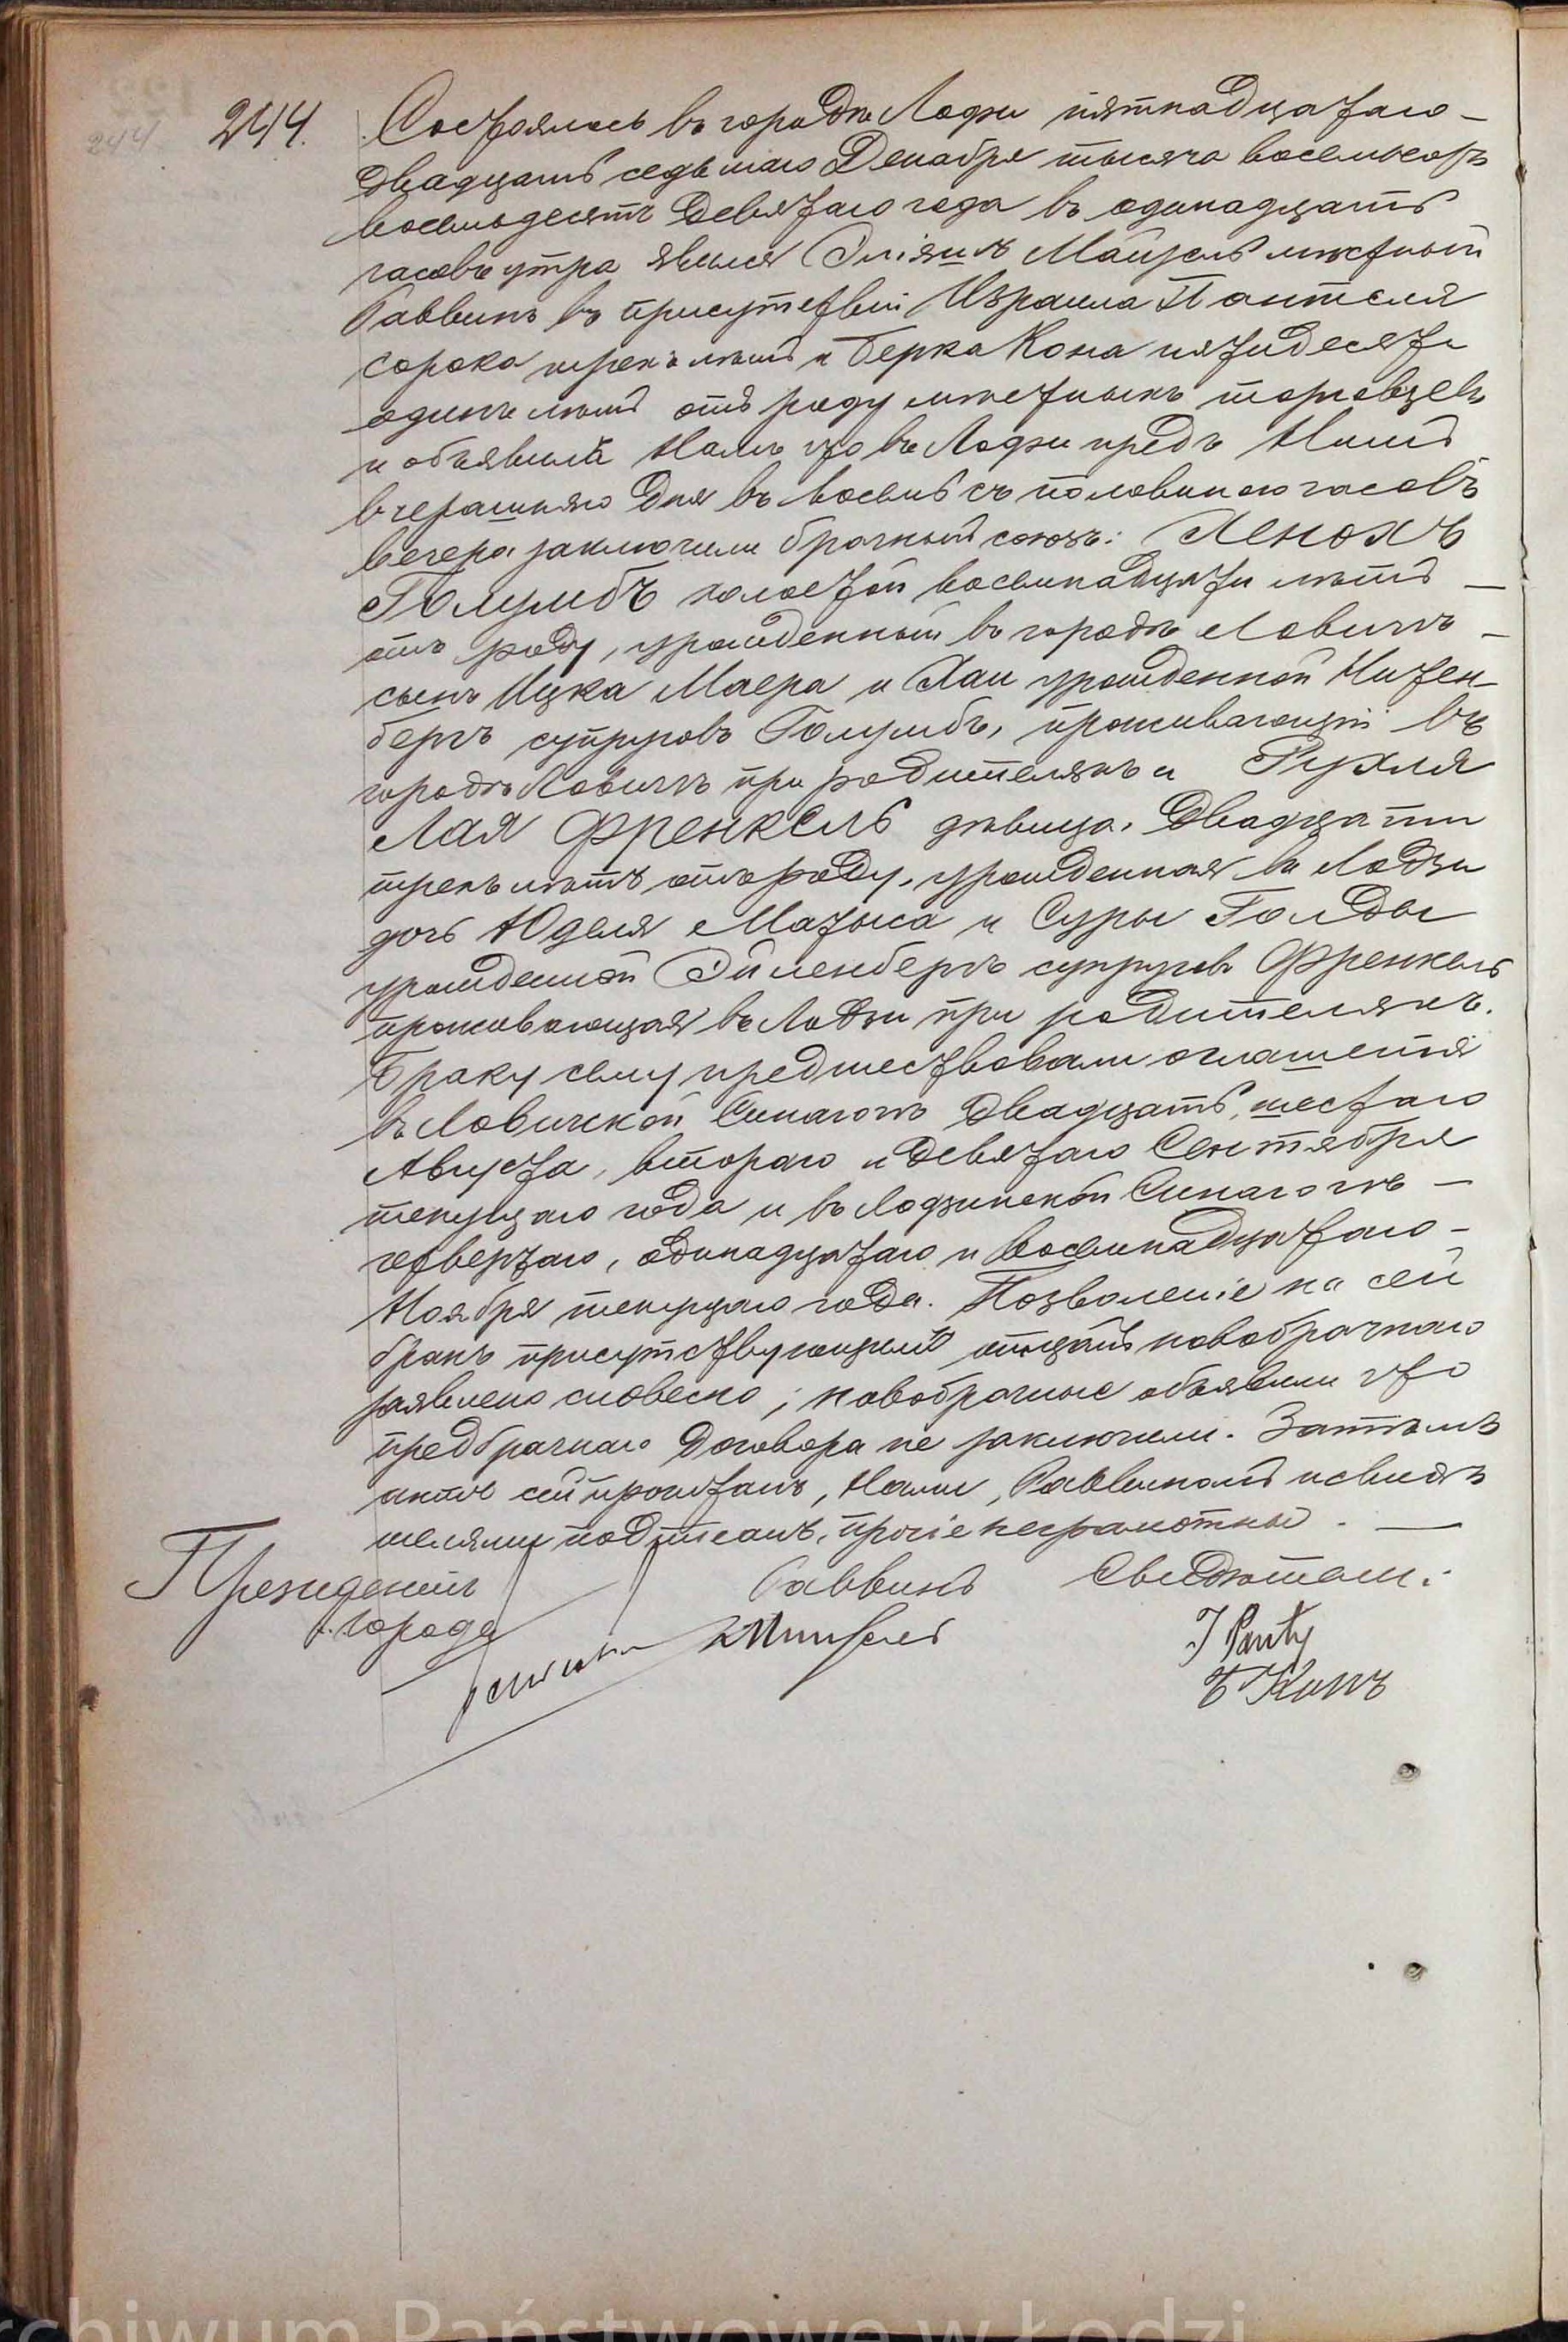 244
244.
Состоялось въ городѣ Лодзи пятнадцатаго -
Двадцать седьмаго Декабря тысяча восемьсотъ
восемьдесятъ девятаго года въ одинадцать
часовъ утра явился Эліяшъ Майзель мѣстный
Раввинъ въ присутствіи Израила Пантеля
сорока трехъ лѣтъ и Берка Кона пятидесяти
одинъ лѣтъ отъ роду мѣстныхъ торговцевъ
и объявилъ Намъ что въ Лодзи предъ Нимъ
вчерашняго Дня въ восемь съ половиною часовъ
вечера заключили брачный союзъ: Хенохъ
Голумбъ холостой восемнадцати лѣтъ —
отъ роду, урожденный въ городѣ Ловичъ -
сынъ Ицка Маера и Хаи урожденной Низен-
бергъ супруговъ Голумбъ, проживающій въ
городѣ Ловичъ при родителяхъ и Рухля
Лая Френкель дѣвица, двадцати
трехъ лѣтъ отъ роду, урожденная въ Лодзи
дочь Юделя Матыса и Суры Голды
урожденной Эйленбергъ супруговъ Френкель
проживающая въ Лодзи при родителяхъ.
Браку сему предшествовали оглашенія
въ Ловичской Синагогѣ двадцать, шестаго
Августа, втораго и девятаго Сентября
текущаго года и въ Лодзинской Синагогѣ —
четвертаго, одинадцатаго и восемнадцатаго -
Ноября текущаго года. Позволеніе на сей
бракъ присутствующимъ отцомъ новобрачнаго
заявлено словесно; новобрачные объявили что
предбрачнаго договора не заключили. Затѣмъ
актъ сей прочитанъ, Нами, Раввиномъ и свидѣ
телями подписанъ, прочіе неграмотны. —
Президентъ Раввинъ Свидѣтели:
г. города
Э Майзель
Б Конъ